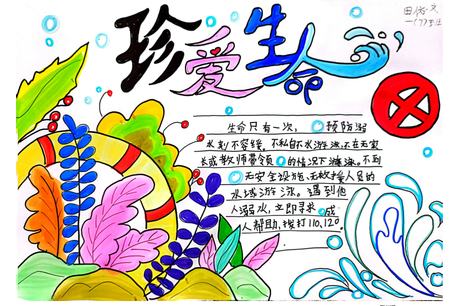 珍爱生命
生命只有一次，预防溺
水刻不容缓，不私自下水游泳，不在无家
长或教师带领的情况下游泳。不到
无安全设施、无救援人员的
水域游泳。遇到他
人溺水，立即寻求成
人帮助，拨打110、120。